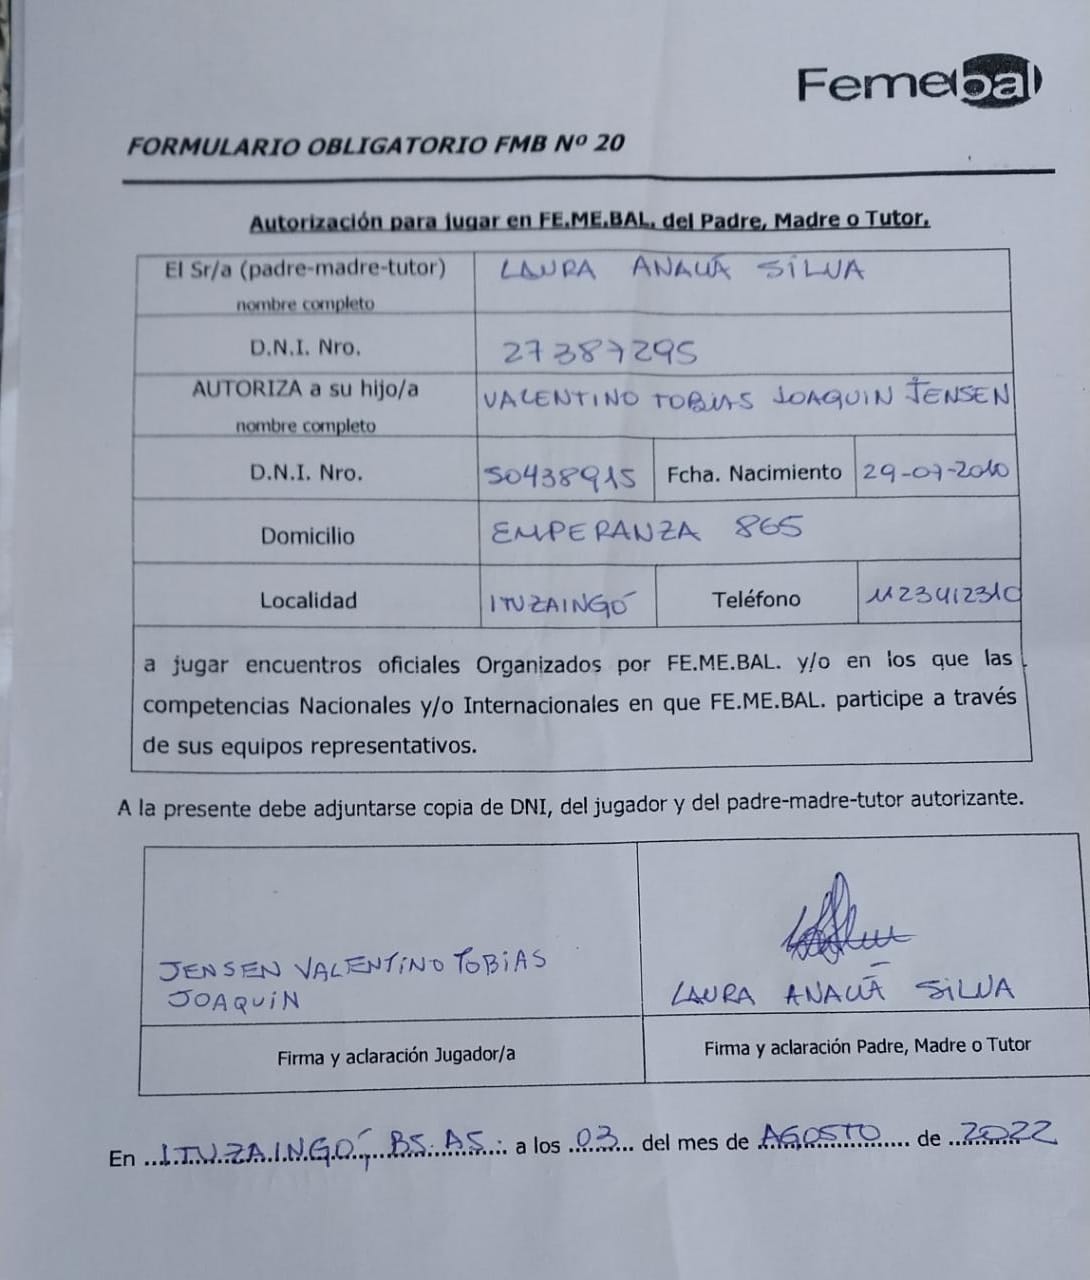 Femebal
FORMULARIO OBLIGATORIO FMB Nº 20
Autorización para jugar en FE.ME.BAL. del Padre, Madre o Tutor.
El Sr/a (padre-madre-tutor) LAURA ANALÍA SILVA
nombre completo
D.N.I. Nro. 27387295
AUTORIZA a su hijo/a VALENTINO TOBIAS JOAQUIN JENSEN
nombre completo
D.N.I. Nro. 50438915 Fcha. Nacimiento 29-07-2010
Domicilio EMPERANZA 865
Localidad ITUZAINGÓ Teléfono 1123412310
a jugar encuentros oficiales Organizados por FE.ME.BAL. y/o en los que las
competencias Nacionales y/o Internacionales en que FE.ME.BAL. participe a través
de sus equipos representativos.
A la presente debe adjuntarse copia de DNI, del jugador y del padre-madre-tutor autorizante.
JENSEN VALENTINO TOBIAS
JOAQUIN
LAURA ANALÍA SILVA
Firma y aclaración Jugador/a
Firma y aclaración Padre, Madre o Tutor
En ITUZAINGÓ, BS. AS. a los 03 del mes de AGOSTO de 2022